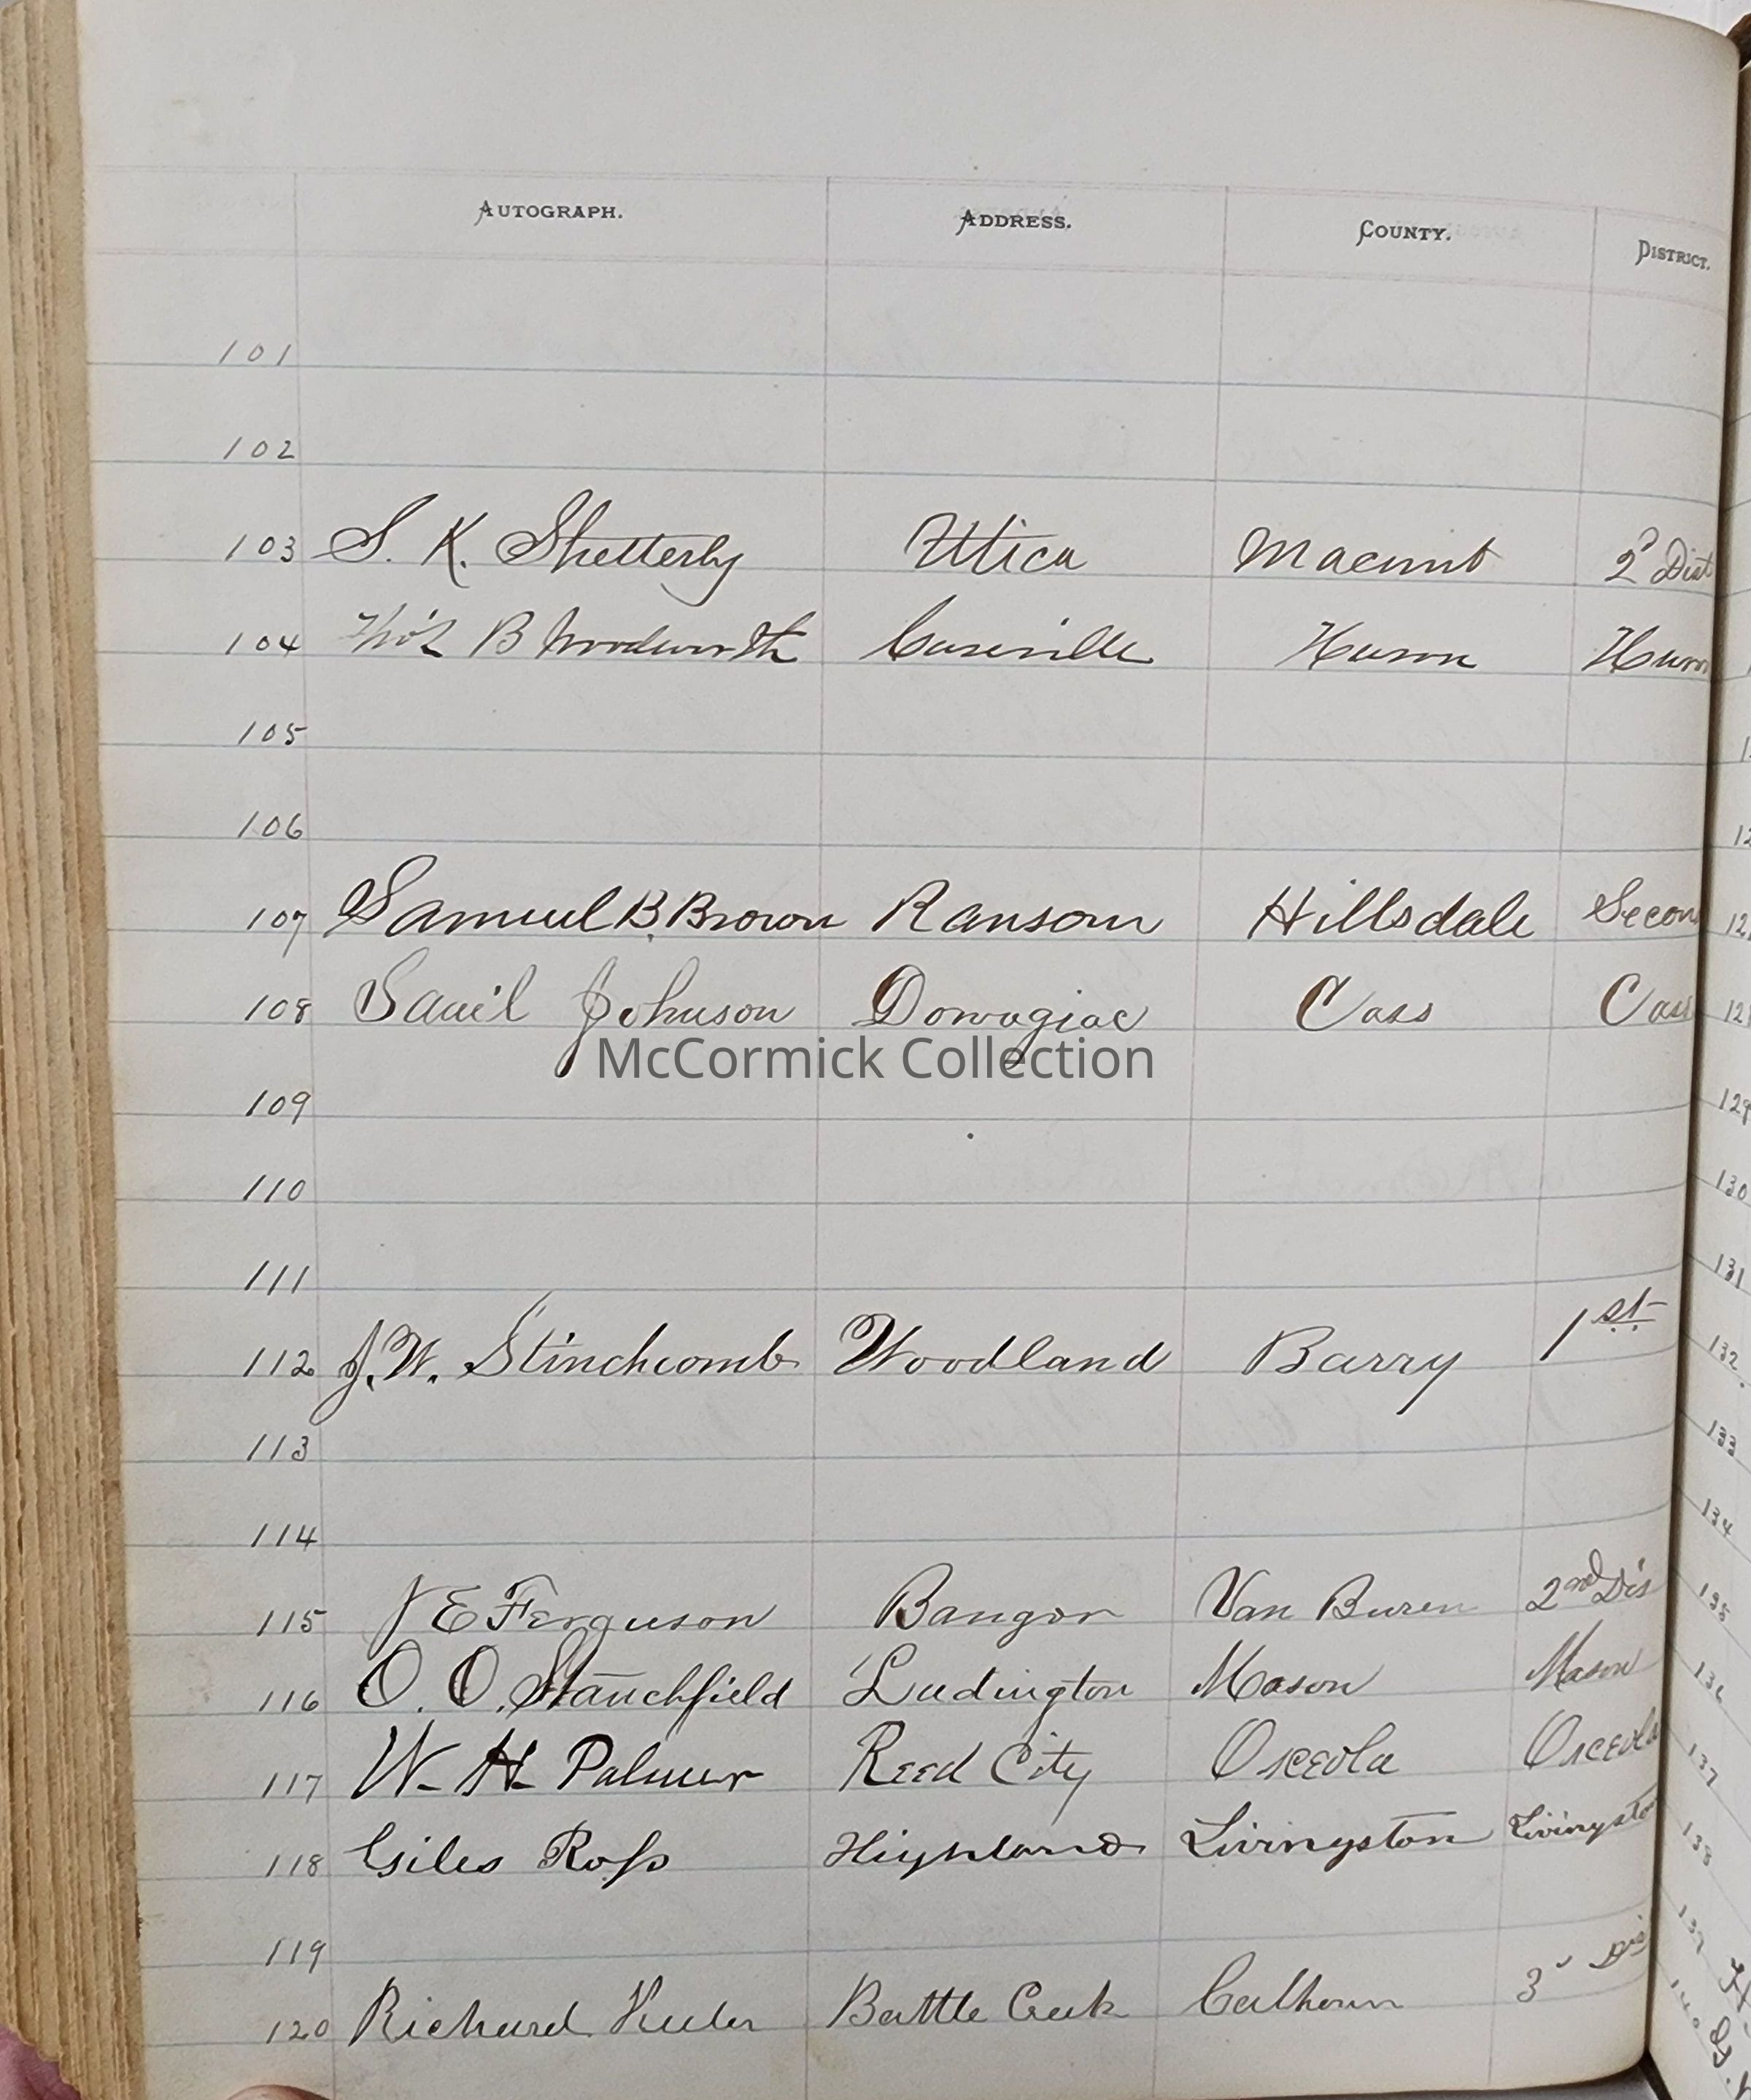 AUTOGRAPH. ADDRESS. COUNTY. DISTRICT.
101
102
103 S. K. Shetterly Utica Macomb 2d Dist
104 Tho's B Woodworth Caseville Huron Huron
105
106
107 Samuel B. Brown Ransom Hillsdale Secon
108 Sam'l Johnson Dowagiac Cass Cass
McCormick Collection
109
110
111
112 J. W. Stinchcomb Woodland Barry 1st
113
114
115 J E Ferguson Bangor Van Buren 2nd Dis
116 O. O. Stanchfield Ludington Mason Mason
117 W. H. Palmer Reed City Osceola Osceola
118 Giles Ross Highland Livingston Livingsto
119
120 Richard Keeler Battle Creek Calhoun 3d Dis
129
130
131
132
133
134
135
136
137
138
139
140